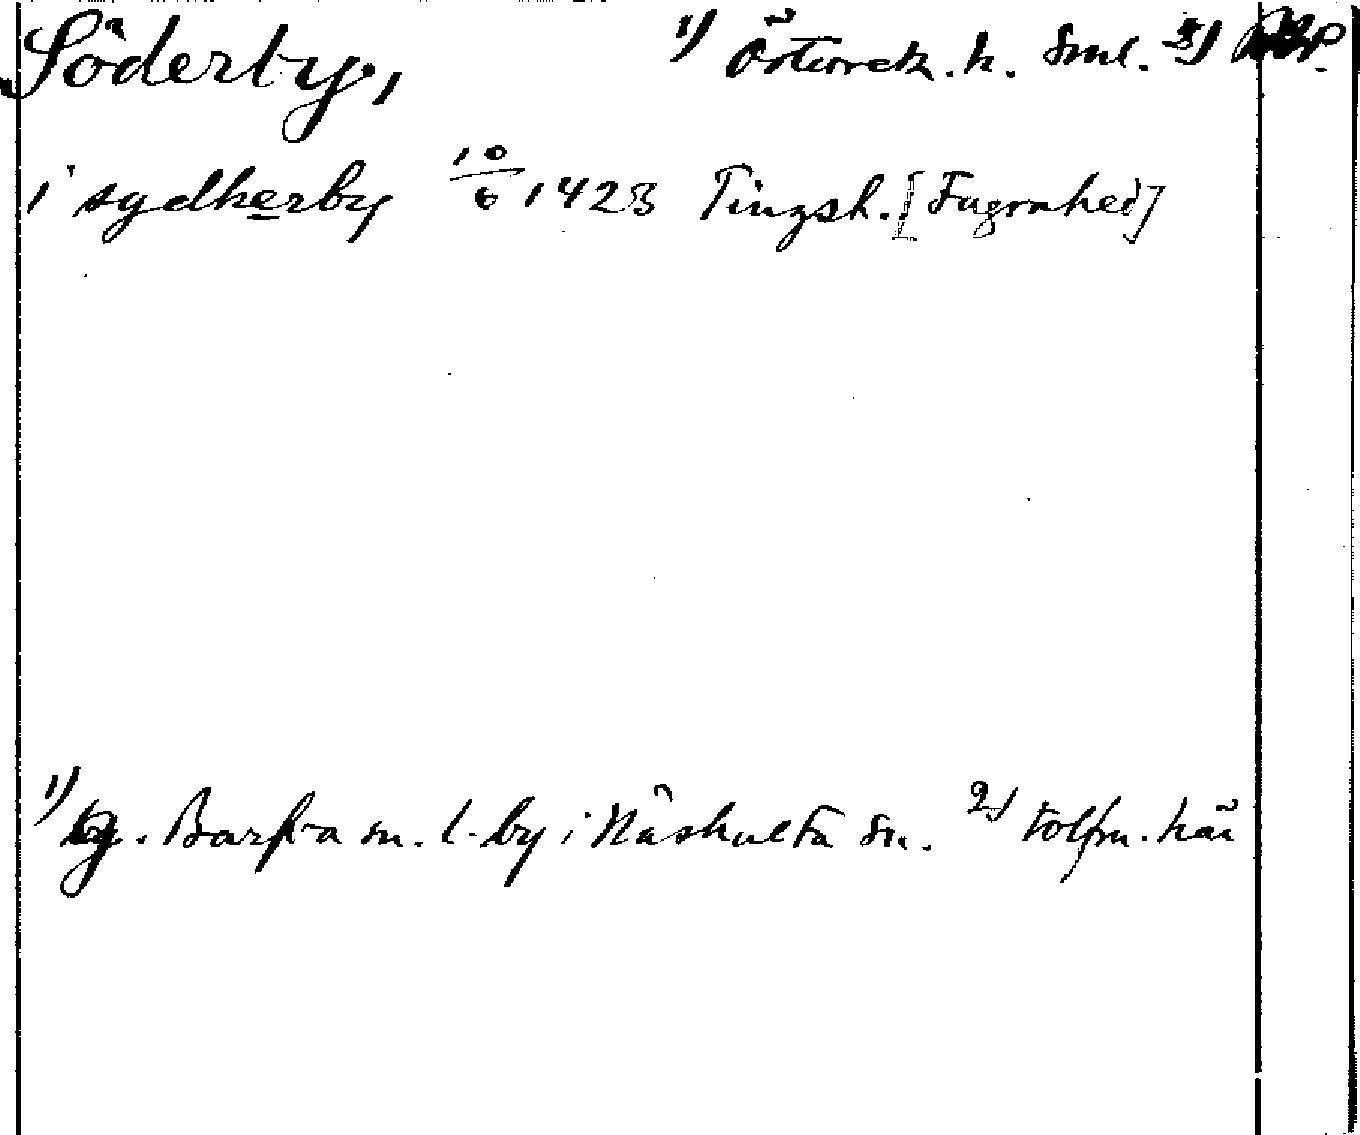 Söderby, 1) Österrek. h. Sml. 2)
i sydherby 10/6 1423 Tingsh. [Fagrahed]
1) tg. Barfra m. l. by i Näshulta sn. 2) tolfm. här